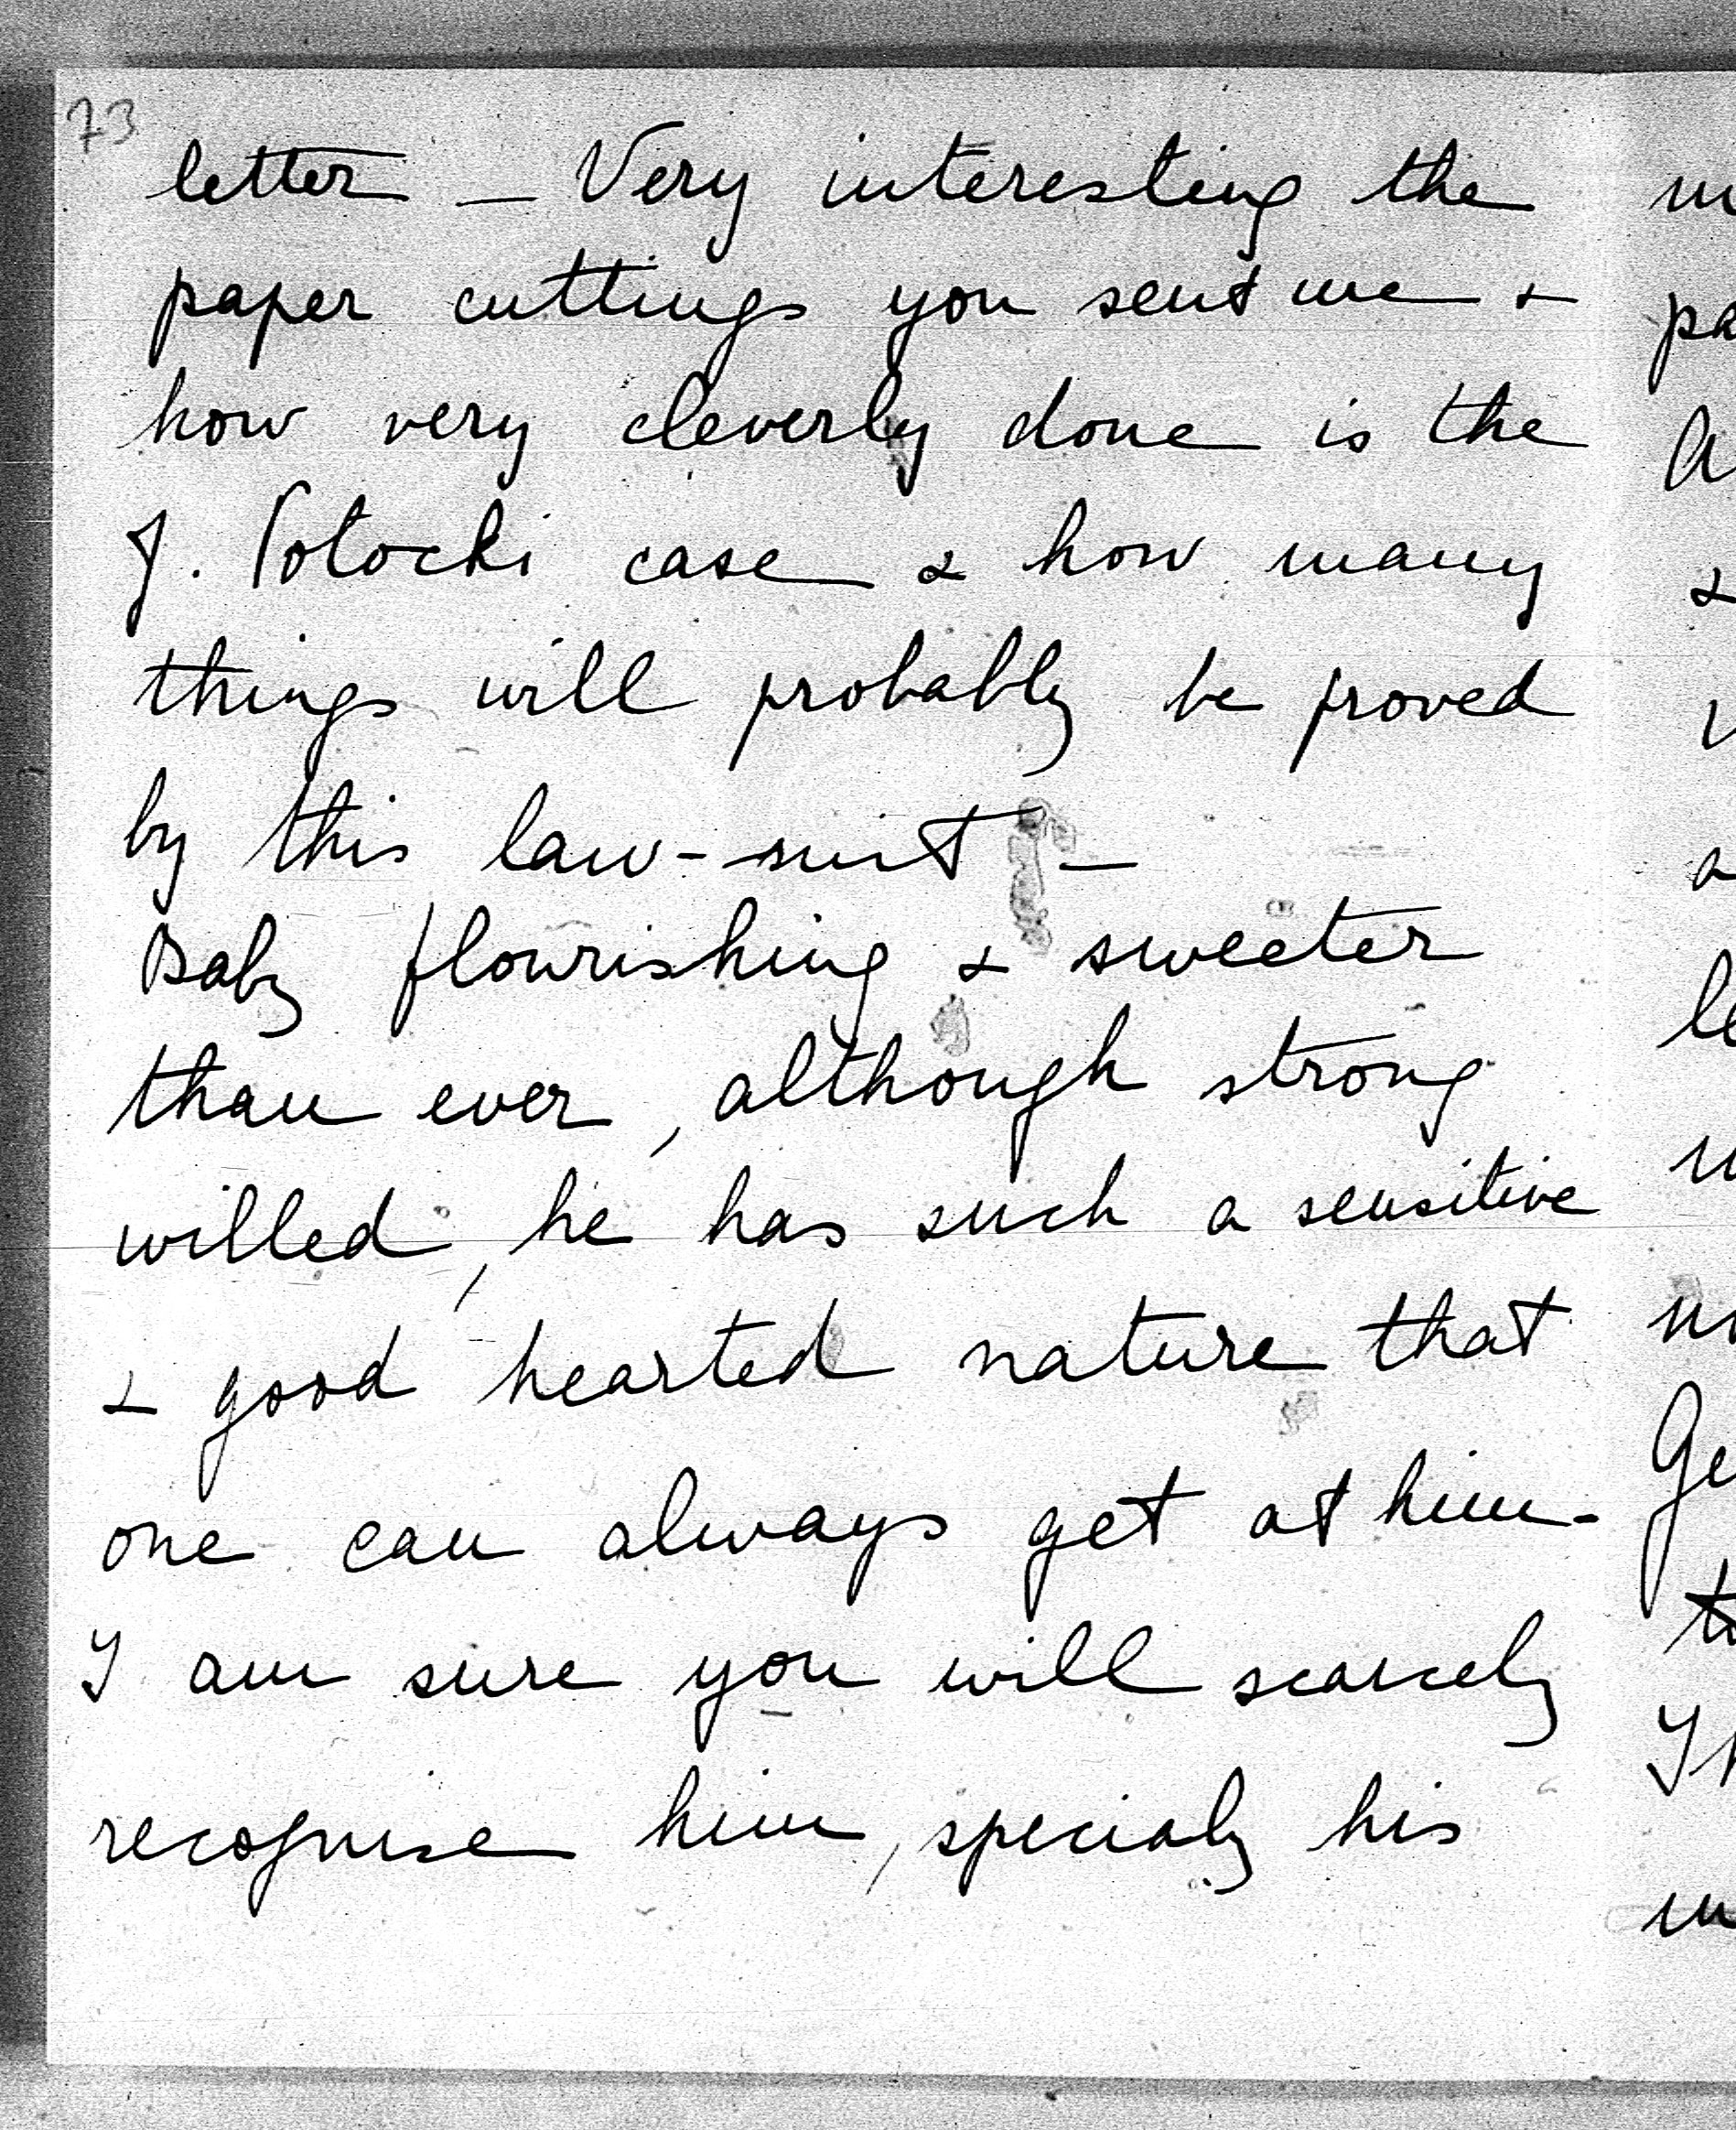 73
letter – Very interesting the
paper cuttings you sent me &
how very cleverly done is the
J. Potocki case & how many
things will probably be proved
by this law-suit –
Baby flourishing & sweeter
than ever, although strong
willed, he has such a sensitive
& good hearted nature that
one can always get at him -
I am sure you will scarcely
recognise him, specialy his